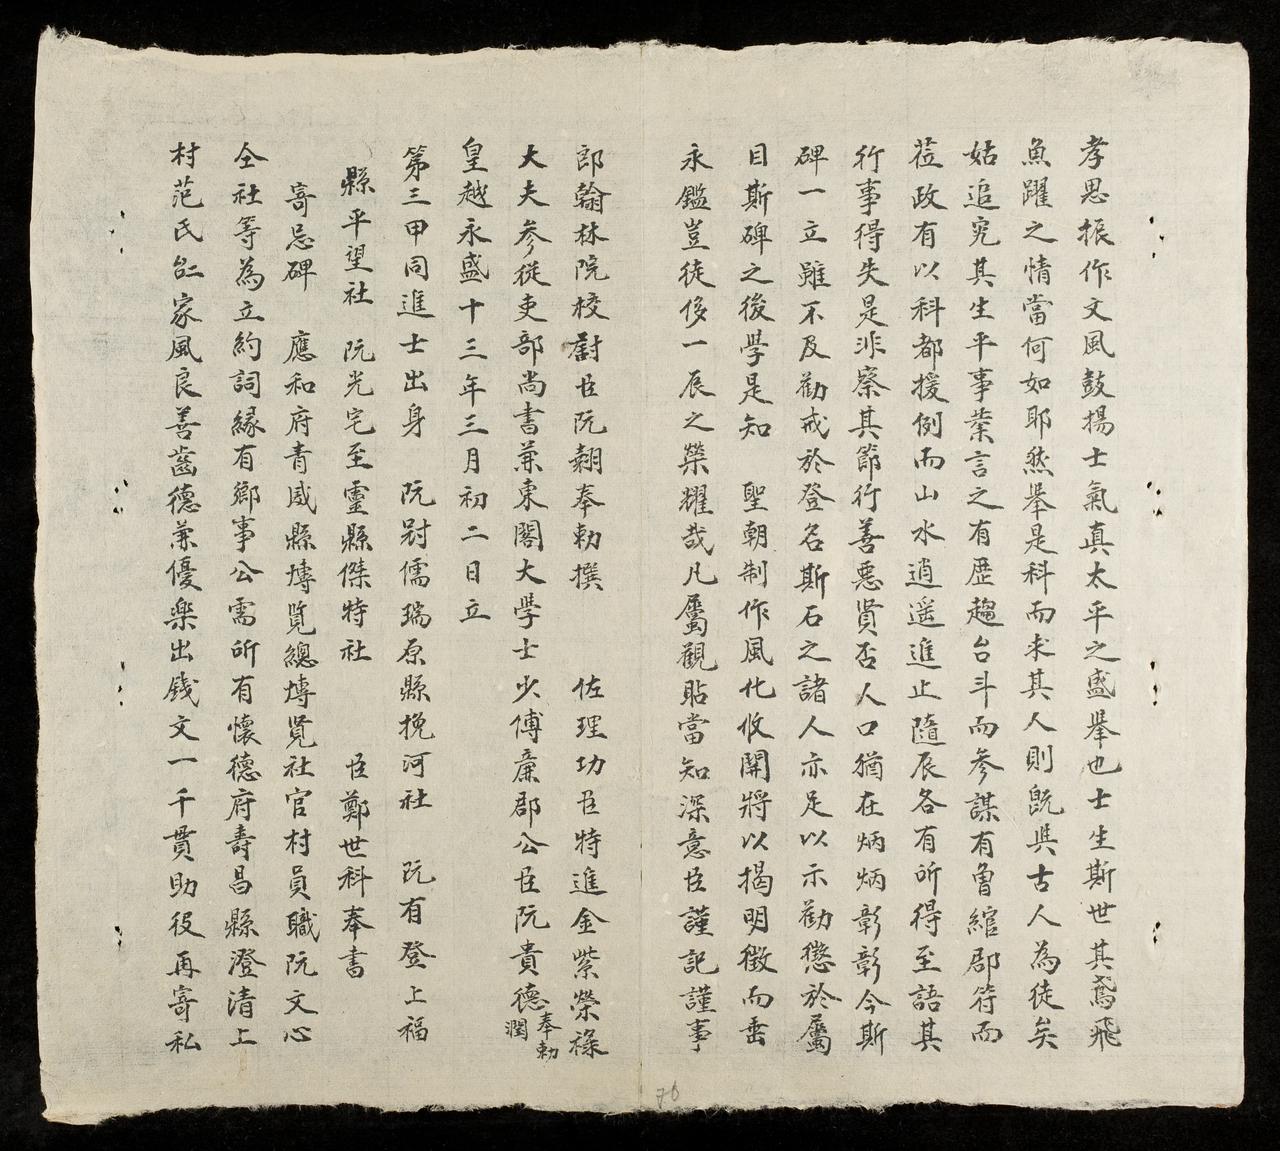 孝思振作文風鼓揚士氣真太平之盛舉也士生斯世其鳶飛
魚躍之情當何如耶然舉是科而求其人則既與古人為徒矣
姑追究其生平事業言之有歷趨台斗而參謀有魯綰郡符而
莅政有以科都援例而山水逍遥進止隨辰各有所得至語其
行事得失是非察其節行善惡賢否人口猶在炳炳彰彰今斯
碑一立雖不及勸戒於登名斯石之諸人亦足以示勸懲於屬
目斯碑之後學是知　聖朝制作風化攸開將以揭明徵而垂
永鑑豈徒侈一辰之榮耀哉凡屬觀貼當知深意臣謹記謹事
郎翰林院校尉臣阮翹奉勅撰　佐理功臣特進金紫榮祿
大夫參從吏部尚書兼東閣大學士少傅廉郡公臣阮貴德奉勅潤
皇越永盛十三年三月初二日立
第三甲同進士出身　阮尉儒瑞原縣挽河社　阮有登上福
縣平望社　阮光宅至靈縣傑特社　臣鄭世科奉書
寄忌碑　應和府青威縣塼覽總塼覽社官村員職阮文心
仝社等為立約詞緣有鄉事公需所有懷德府壽昌縣澄清上
村范氏𠇍家風良善齒德兼優樂出錢文一千貫助役再寄私
76